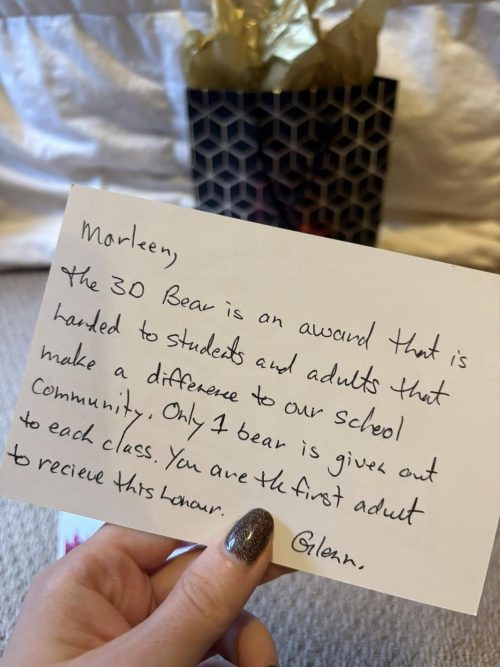 Marleen,
the 3D Bear is an award that is
handed to students and adults that
make a difference to our school
Community. Only 1 bear is given out
to each class. You are the first adult
to recieve this honour.
Glenn.